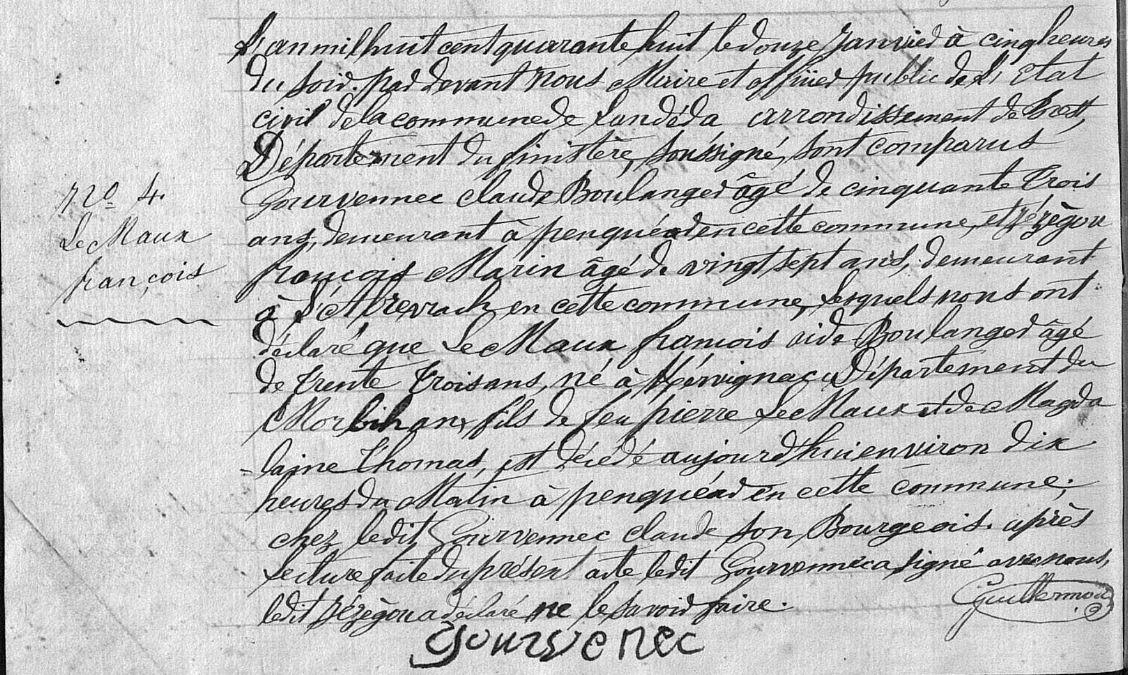 L'an mil huit cent quarante huit le douze Janvier à cinq heures
du soir. par devant nous Maire et officier public de L'Etat
civil de la commune de Landeda arrondissement de Brest,
Département du finistère, soussigné, sont comparus
Gourvennec claude Boulanger âgé de cinquante Trois
ans, demeurant à penquéar en cette commune, et
françois Marin âgé de vingt, sept ans, demeurant
à L'Abrevrach en cette commune, Lesquels nous ont
déclaré que Le Maux francois aide Boulanger âgé
de Trente Trois ans, né à Département du
Morbihan, fils de feu pierre Le Maux et de Magda
-laine Thomas, est décédé aujourd'hui environ dix
heures du Matin à penquéar en cette commune;
chez ledit Gourvennec claude son Bourgeois. après
Lecture faite du présent acte ledit Gourvennec a signé avec nous,
ledit a déclaré ne le savoir faire.
Nro. 4.
Le Maux
françois
Guillermou
gourvenec